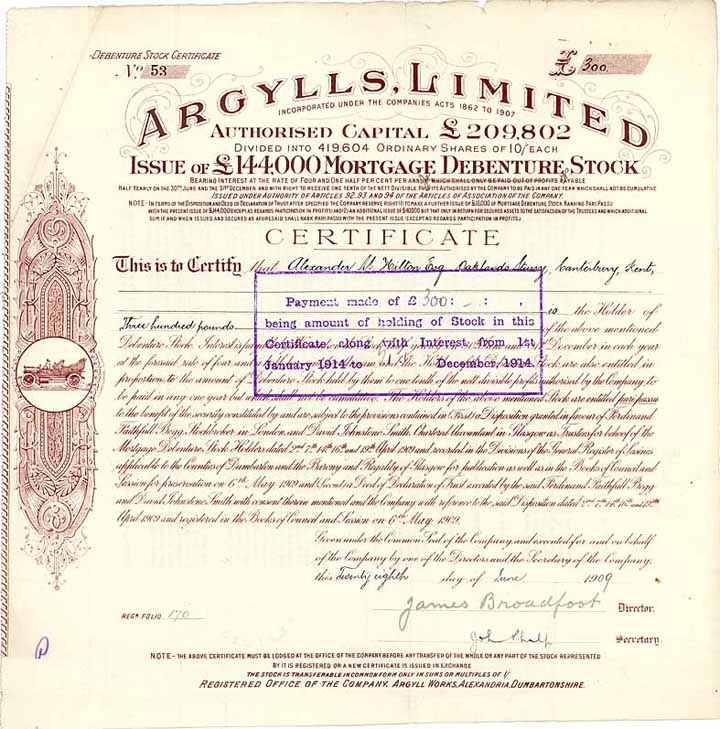 DEBENTURE STOCK CERTIFICATE
No. 53
£ 300.
ARGYLLS, LIMITED
INCORPORATED UNDER THE COMPANIES ACTS 1862 TO 1907
AUTHORISED CAPITAL £209,802
DIVIDED INTO 419,604 ORDINARY SHARES OF 10/ EACH
ISSUE OF £144,000 MORTGAGE DEBENTURE STOCK
BEARING INTEREST AT THE RATE OF FOUR AND ONE HALF PER CENT PER ANNUM WHICH SHALL ONLY BE PAID OUT OF PROFITS PAYABLE
HALF YEARLY ON THE 30TH JUNE AND THE 31ST DECEMBER AND WITH RIGHT TO RECEIVE ONE TENTH OF THE NETT DIVISIBLE PROFITS AUTHORISED BY THE COMPANY TO BE PAID IN ANY ONE YEAR WHICH SHALL NOT BE CUMULATIVE
ISSUED UNDER AUTHORITY OF ARTICLES 92, 93 AND 94 OF THE ARTICLES OF ASSOCIATION OF THE COMPANY
NOTE - IN TERMS OF THE DISPOSITION AND DEED OF DECLARATION OF TRUST AFTER SPECIFIED THE COMPANY RESERVE RIGHT (1) TO MAKE A FURTHER ISSUE OF £16,000 OF MORTGAGE DEBENTURE STOCK RANKING PARI PASSU
WITH THE PRESENT ISSUE OF £144,000 EXCEPT AS REGARDS PARTICIPATION IN PROFITS AND (2) AN ADDITIONAL ISSUE OF £40,000 BUT THAT ONLY IN RETURN FOR SECURED ASSETS TO THE SATISFACTION OF THE TRUSTEES AND WHICH ADDITIONAL
SUM IF AND WHEN ISSUED AND SECURED AS AFORESAID SHALL RANK PARI PASSU WITH THE PRESENT ISSUE (EXCEPT AS REGARDS PARTICIPATION IN PROFITS)
CERTIFICATE
This is to Certify that Alexander Hilton Esq Oaklands Canterbury, Kent,
is the Holder of
Three hundred pounds of the above mentioned
Debenture Stock. Interest is December in each year
at the foresaid rate of four and Stock are also entitled in
proportion to the amount of Debenture Stock held by them to one tenth of the nett divisible profits authorised by the Company to
be paid in any one year but which shall not be cumulative. The Holders of the above mentioned Stock are entitled pari passu
to the benefit of the security constituted by and are subject to the provisions contained in First a Disposition granted in favour of Ferdinand
Faithfull Begg Stockbroker in London and David Johnstone Smith, Chartered Accountant in Glasgow as Trustees for behoof of the
Mortgage Debenture Stock Holders dated 2nd 7th 14th 16th and 19th April 1909 and recorded in the Divisions of the General Register of Sasines
applicable to the Counties of Dumbarton and the Barony and Regality of Glasgow for publication as well as in the Books of Council and
Session for preservation on 6th May 1909 and Second a Deed of Declaration of Trust executed by the said Ferdinand Faithfull Begg
and David Johnstone Smith with consent therein mentioned and the Company with reference to the said Disposition dated 2nd 7th 14th 16th and 19th
April 1909 and registered in the Books of Council and Session on 6th May 1909.
Payment made of £ 300: -: ,
being amount of holding of Stock in this
Certificate, along with Interest from 1st
January 1914 to December, 1914
Given under the Common Seal of the Company, and executed for and on behalf
of the Company by one of the Directors and the Secretary of the Company,
this Twenty eighth day of June 1909
James Broadfoot Director.
REGR FOLIO 170
Secretary.
NOTE - THE ABOVE CERTIFICATE MUST BE LODGED AT THE OFFICE OF THE COMPANY BEFORE ANY TRANSFER OF THE WHOLE OR ANY PART OF THE STOCK REPRESENTED
BY IT IS REGISTERED OR A NEW CERTIFICATE IS ISSUED IN EXCHANGE
THE STOCK IS TRANSFERABLE IN COMMON FORM ONLY IN SUMS OR MULTIPLES OF
REGISTERED OFFICE OF THE COMPANY, ARGYLL WORKS, ALEXANDRIA, DUMBARTONSHIRE.